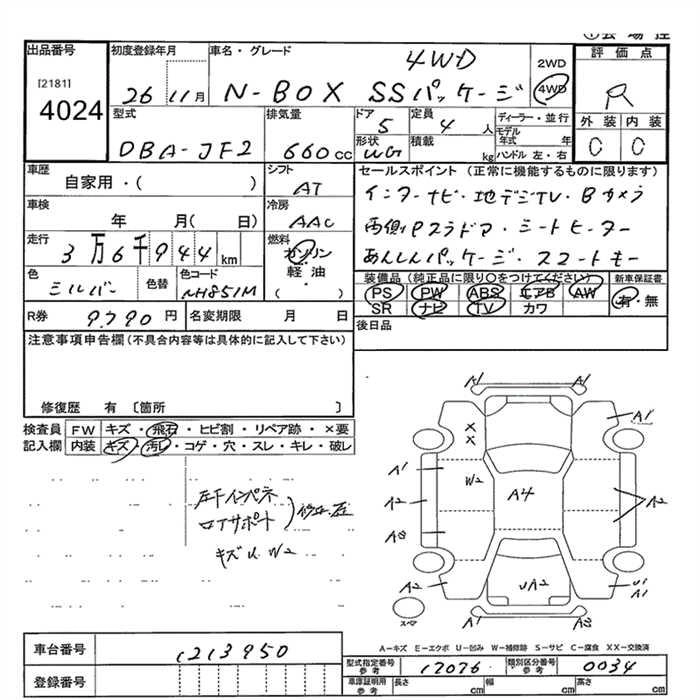 出品番号
[2181]
4024
初度登録年月
26 11月
車名・グレード
4WD
N-BOX SSパッケージ
2WD
4WD
評価点
R
型式
DBA-JF2
排気量
660cc
ドア
5
定員
4人
形状
WG
積載
kg
ディーラー・並行
モデル年式 年
ハンドル 左・右
外装 内装
C C
車歴
自家用・( )
シフト
AT
セールスポイント (正常に機能するものに限ります)
インターナビ・地デジTV・Bカメラ
両側Pスラドア・シートヒーター
あんしんパッケージ・スマートキー
車検
年 月( 日)
冷房
AAC
走行
3万6千944km
燃料
ガソリン
軽油・
( )
色
シルバー
色替
色コード
NH851M
装備品 (純正品に限り○をつけてください)
PS PW ABS エアB AW
SR ナビ TV カワ
新車保証書
有・無
R券 9,790円
名変期限 月 日
後日品
注意事項申告欄(不具合内容等は具体的に記入して下さい)
修復歴 有〔箇所 〕
検査員記入欄
FW キズ・飛石・ヒビ割・リペア跡・×要
内装 キズ・汚レ・コゲ・穴・スレ・キレ・破レ
左Fインパネ
ロアサポート
修正歴
キズ U W2
A1 A1
A1
X
X
W2
A1
A2
A4
A2
A2
UA2
U1
A1
A1
スペア
A-キズ E-エクボ U-凹み W-補修跡 S-サビ C-腐食 XX-交換済
車台番号
1213950
登録番号
型式指定番号 参考
17076
類別区分番号 参考
0034
車庫証明用 参考
長さ cm
幅 cm
高さ cm